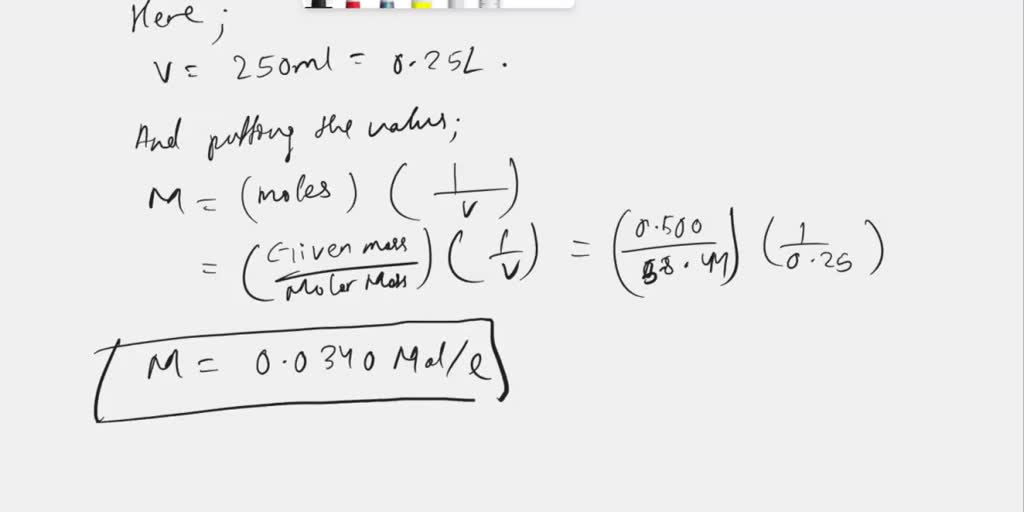 Here;
V = 250ml = 0.25L.
And putting the values;
M = (moles) (1/V)
= (Given mass/Molar Mass) (1/V) = (0.500/58.44) (1/0.25)
M = 0.0340 Mol/l